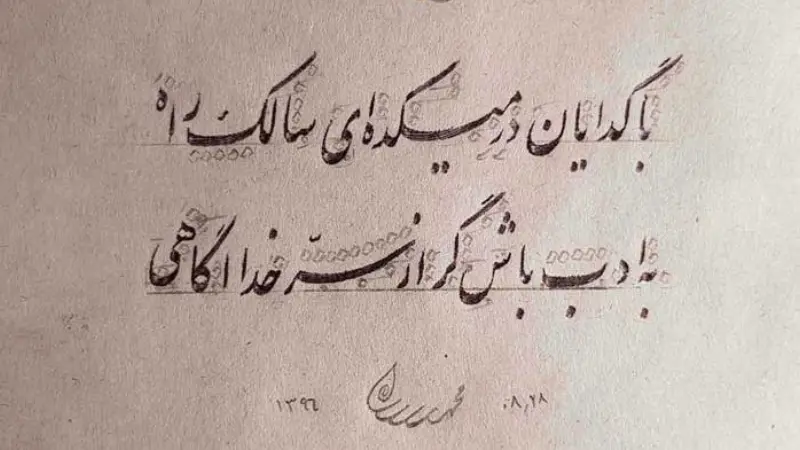 با گدایان در میکده ای سالک راه
به ادب باش گر از سرّ خدا آگاهی
۱۳۹۶ ۰۸،۲۸